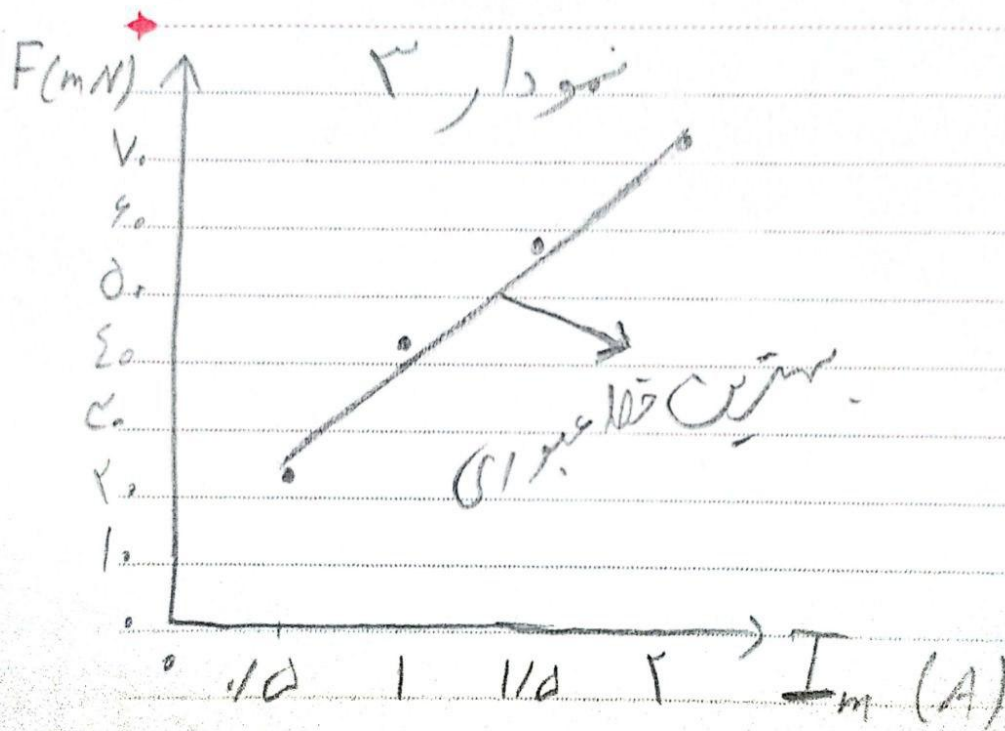 نمودار ۳
F(mN)
۷۰
۶۰
۵۰
۴۰
۳۰
۲۰
۱۰
۰
بهترین خط عبوری
۰ ۰/۵ ۱ ۱/۵ ۲ Im (A)